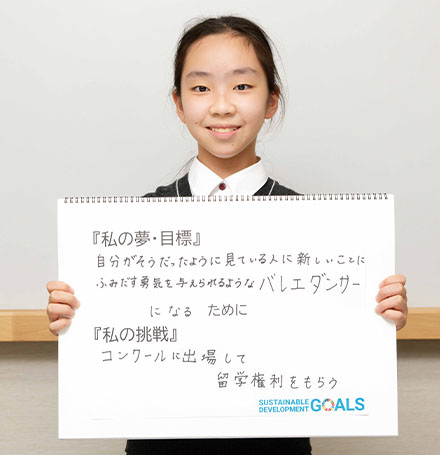 『私の夢・目標』
自分がそうだったように見ている人に新しいことに
ふみだす勇気を与えられるようなバレエダンサー
になる ために
『私の挑戦』
コンクールに出場して
留学権利をもらう
SUSTAINABLE
DEVELOPMENT GOALS